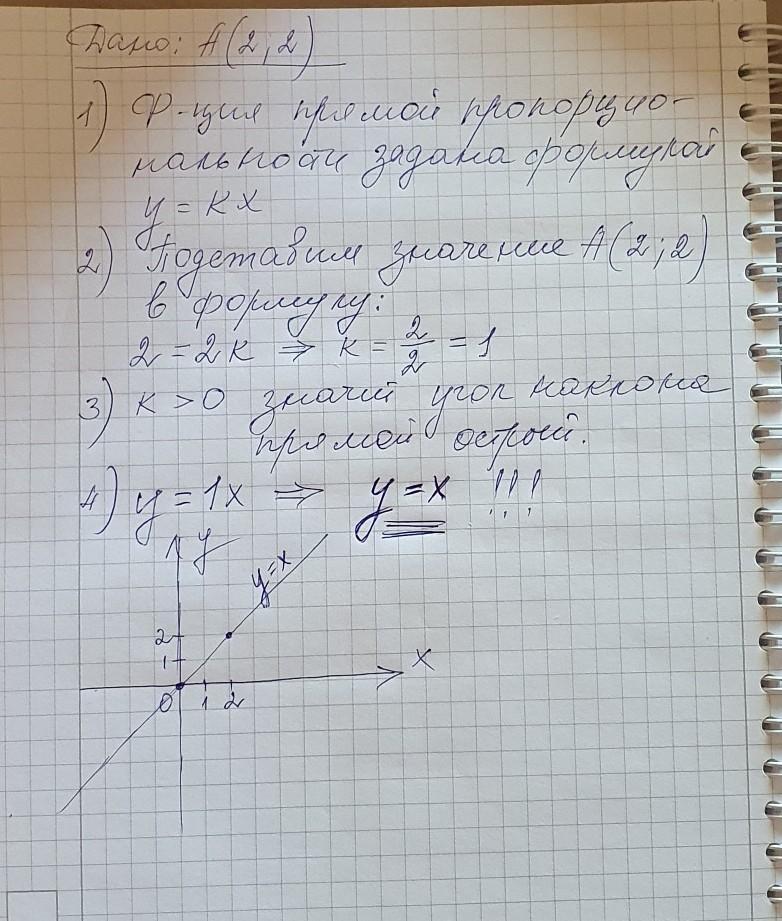 Дано: A(2;2)
1) Ф-ция прямой пропорцио-
нальности задана формулой
y = kx
2) Подставим значение A(2;2)
в формулу:
2 = 2k ⇒ k = 2/2 = 1
3) k > 0 значит угол наклона
прямой острый.
4) y = 1x ⇒ y = x !!!
y
y=x
2
1
x
0 1 2